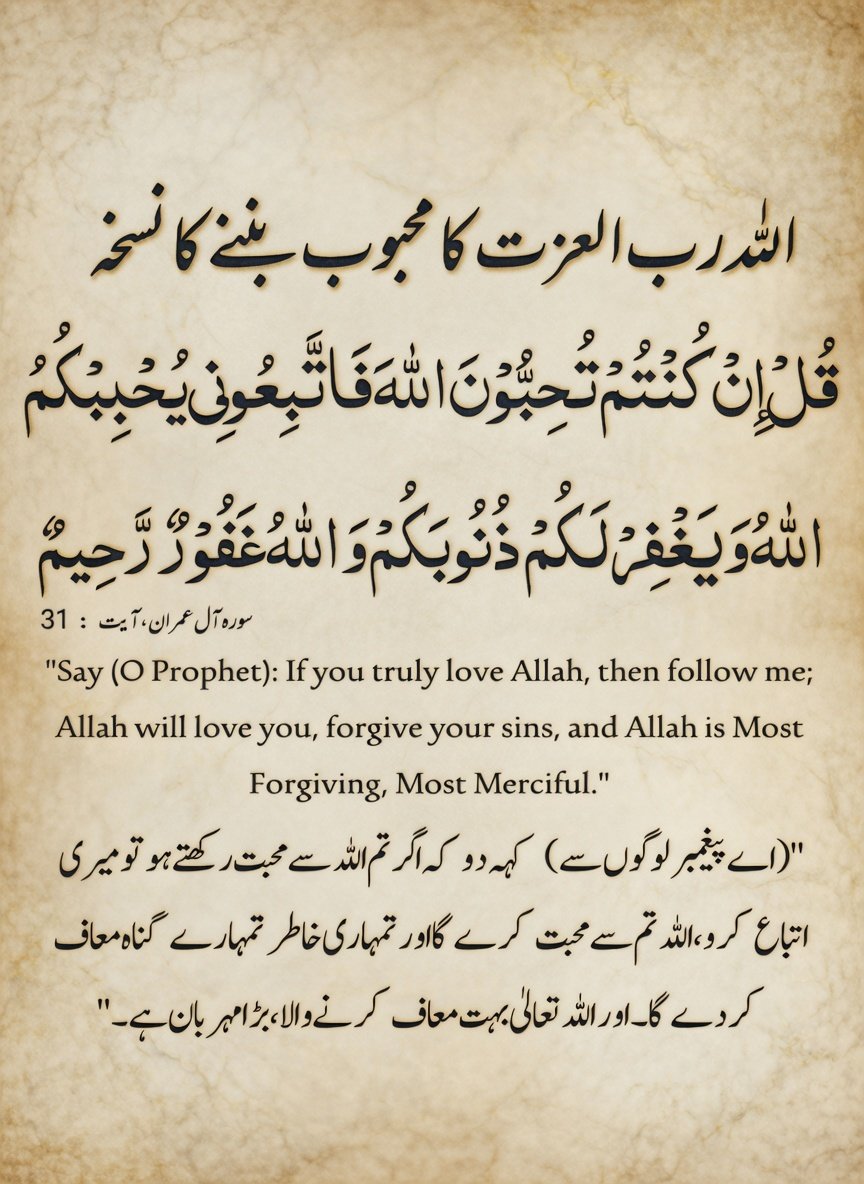 اللہ رب العزت کا محبوب بننے کا نسخہ
قُلْ اِنْ كُنْتُمْ تُحِبُّوْنَ اللّٰهَ فَاتَّبِعُونِی يُحْبِبْكُمُ
اللّٰهُ وَيَغْفِرْ لَكُمْ ذُنُوبَكُمْ وَاللّٰهُ غَفُوْرٌ رَّحِيمٌ
سورہ آل عمران، آیت : 31
"Say (O Prophet): If you truly love Allah, then follow me;
Allah will love you, forgive your sins, and Allah is Most
Forgiving, Most Merciful."
"(اے پیغمبر لوگوں سے) کہہ دو کہ اگر تم اللہ سے محبت رکھتے ہو تو میری
اتباع کرو، اللہ تم سے محبت کرے گا اور تمہاری خاطر تمہارے گناہ معاف
کر دے گا۔ اور اللہ تعالیٰ بہت معاف کرنے والا، بڑا مہربان ہے۔"